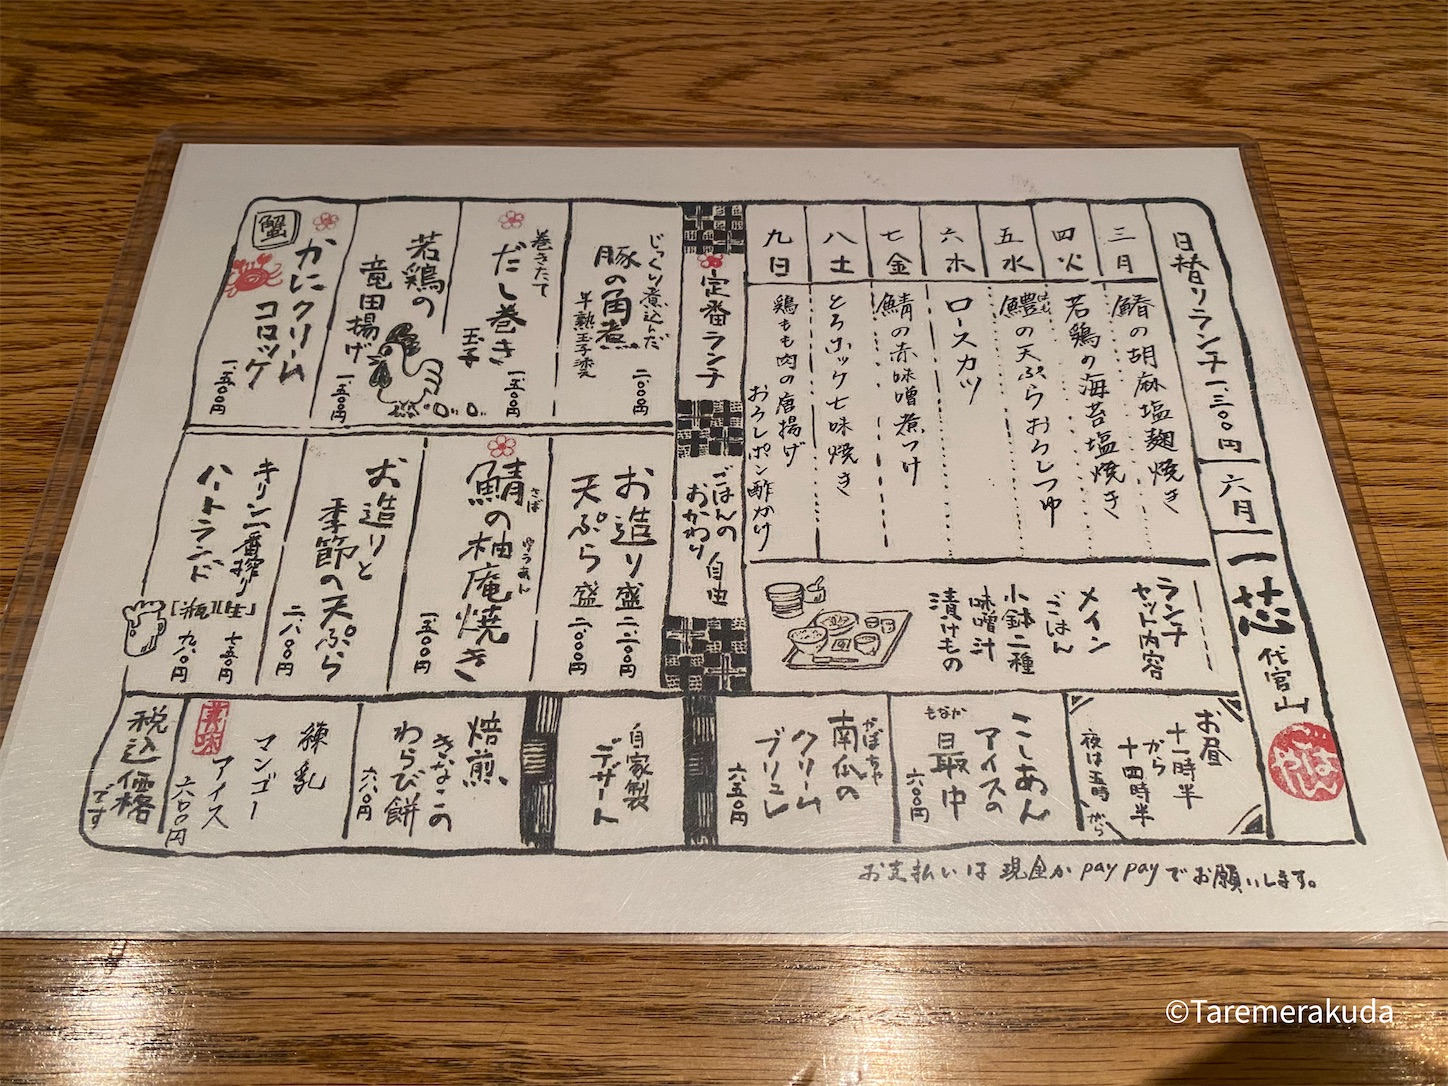 日替りランチ 一、三〇〇円
六月
一芯
代官山
ごはんや
三月
鰆の胡麻塩麹焼き
四火
若鶏の海苔塩焼き
五水
鱧の天ぷらおろしつゆ
はも
六木
ロースカツ
七金
鯖の赤味噌煮つけ
八土
とろホッケ七味焼き
九日
鶏もも肉の唐揚げ
おろしポン酢かけ
ランチ
セット内容
メイン
ごはん
小鉢二種
味噌汁
漬けもの
定番ランチ
ごはんの
おかわり
自由
じっくり煮込んだ
豚の角煮
半熟玉子添え
二、〇〇〇円
巻きたて
だし巻き
玉子
一、五〇〇円
若鶏の
竜田揚げ
一、五〇〇円
蟹
かにクリーム
コロッケ
一、五〇〇円
お造り盛 二、二〇〇円
天ぷら盛 二、〇〇〇円
鯖の柚庵焼き
さば
ゆうあん
一、五〇〇円
お造りと
季節の天ぷら
二、六〇〇円
キリン一番搾り [生] 七五〇円
ハートランド [瓶] 九八〇円
お昼
十一時半
から
十四時半
夜は五時から
こしあん
アイスの
最中
もなか
六〇〇円
かぼちゃ
南瓜の
クリーム
ブリュレ
六五〇円
自家製
デザート
焙煎
きなこの
わらび餅
六八〇円
練乳
マンゴー
アイス
美味
六〇〇円
税込価格
です
お支払いは現金かpay payでお願いします。
©Taremerakuda